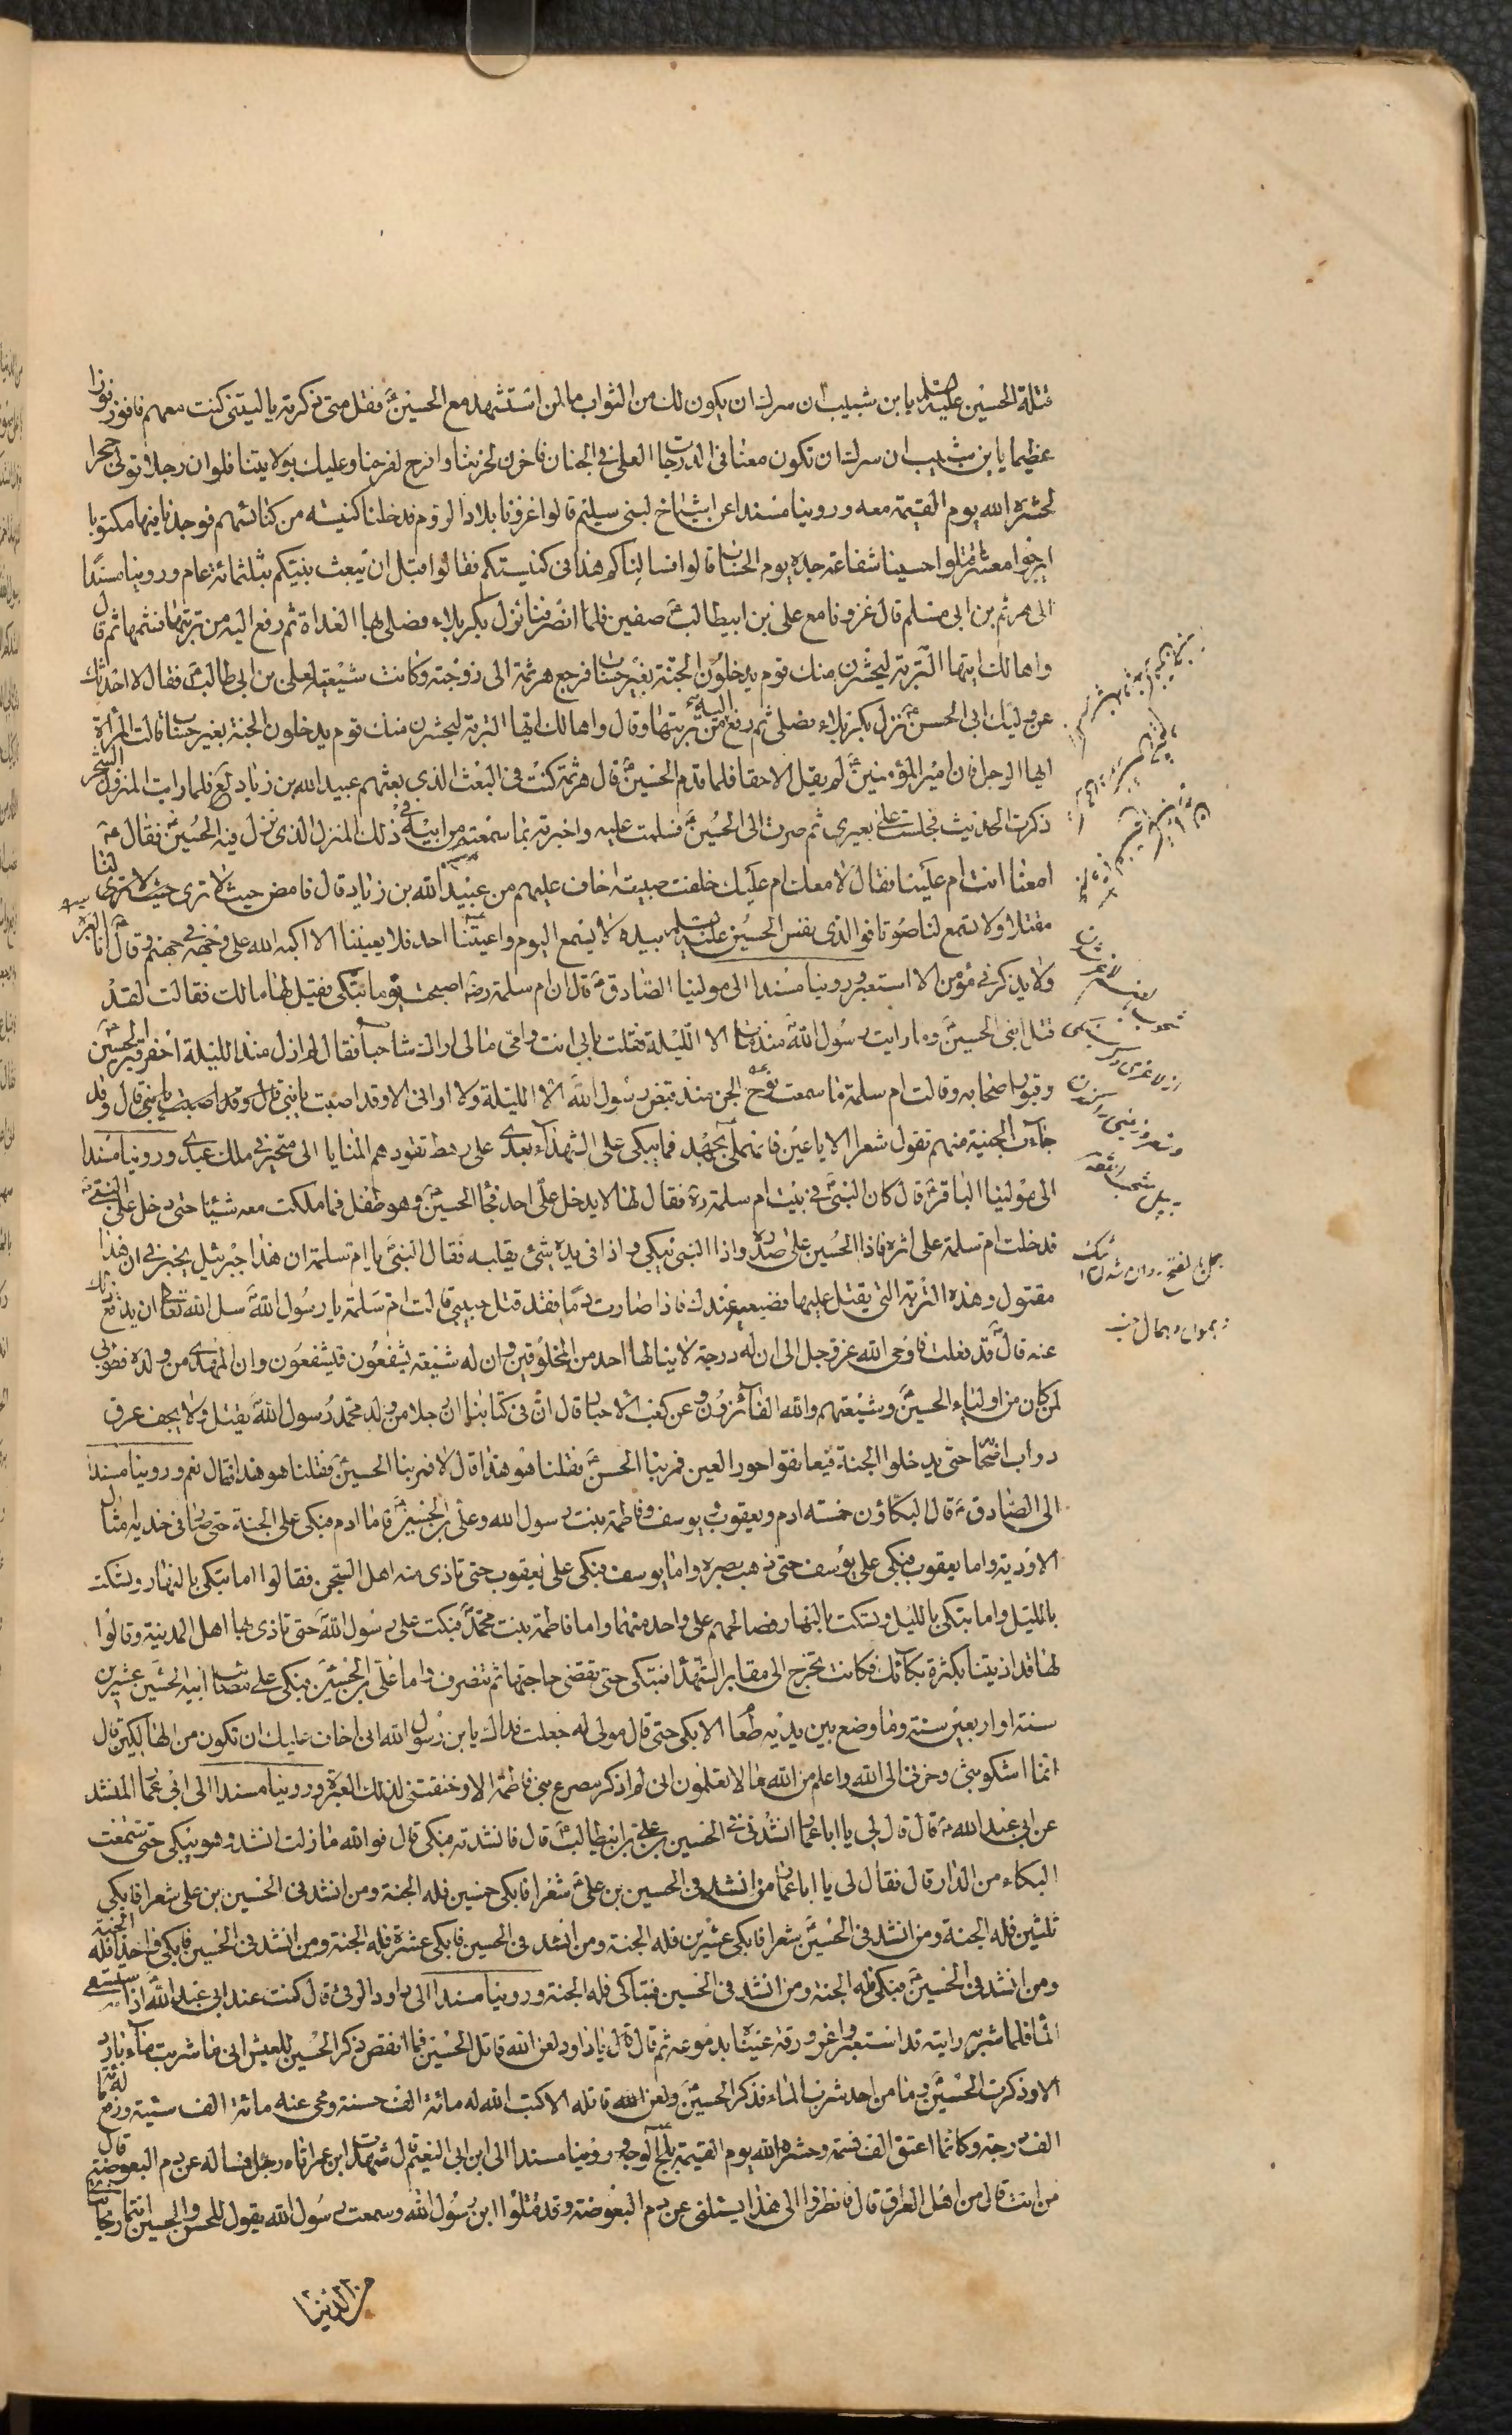 قتلة الحسين عليه السلم يا بن شبيب ان سرك ان يكون لك من الثواب ما لمن استشهد مع الحسين ع فقل متى ذكرته يا ليتني كنت معهم فافوز فوزا
عظيما يا بن شبيب ان سرك ان تكون معنا في الدرجات العلى في الجنان فاحزن لحزننا وافرح لفرحنا وعليك بولايتنا فلو ان رجلا تولى حجرا
لحشره الله يوم القيمة معه وروينا مسندا عن اشياخ لبني سليم قالوا غزونا بلاد الروم فدخلنا كنيسه من كنائسهم فوجدنا فيها مكتوبا
ايرجوا معشر قتلوا حسينا شفاعة جده يوم الحساب قالوا فسالناكم هذا في كنيستكم فقالوا قبل ان يبعث نبيكم بثلثمائة عام وروينا مسندا
الى هرثم بن ابي مسلم قال غزونا مع علي بن ابيطالب ع صفين فلما انصرفنا نزل بكربلاء فصلى بها الغداة ثم رفع اليه من تربتها فشمها ثم قال
واها لك ايتها التربة ليحشرن منك قوم يدخلون الجنة بغير حساب فرجع هرثمة الى زوجته وكانت شيعية لعلي بن ابي طالب ع فقال الا احدثك
عن وليك ابي الحسن ع نزل بكربلاء فصلى ثم رفع اليه من تربتها وقال واها لك ايتها التربة ليحشرن منك قوم يدخلون الجنة بغير حساب قالت المراة
ايها الرجل فان امير المؤمنين ع لم يقل الا حقا فلما قدم الحسين ع قال هرثمة كنت في البعث الذي بعثهم عبيد الله بن زياد لع فلما رايت المنزل والشجر
ذكرت الحديث فجلست على بعيري ثم صرت الى الحسين ع فسلمت عليه واخبرته بما سمعته من ابيه في ذلك المنزل الذي نزل فيه الحسين ع فقال ع
امعنا انت ام علينا فقال لا معك ام عليك خلفت صبية اخاف عليهم من عبيد الله بن زياد قال فامض حيث لا ترى لنا
مقتلا ولا تسمع لنا صوتا فو الذي نفس الحسين عليه السلم بيده لا يسمع اليوم واعيتنا احد فلا يعيننا الا اكبه الله على وجهه في جهنم وقال ع انا قتيل العبرة
ولا يذكرني مؤمن الا استعبر وروينا مسندا الى مولينا الصادق ع قال ان ام سلمة رض اصبحت يوما تبكي فقيل لها ما لك فقالت لقد
قتل ابني الحسين ع وما رايت رسول الله ص منذ مات الا الليلة فقلت بابي انت وامي ما لي اراك شاحبا فقال لم ازل منذ الليلة احفر قبر الحسين
وقبور اصحابه وقالت ام سلمة ما سمعت نوح الجن منذ قبض رسول الله الا الليلة ولا اراني الا وقد اصبت بابني قال وقد
جاءت الجنية منهم تقول شعرا الا يا عين فانهملي بجهد فما يبكي على الشهداء بعدي على رهط تقودهم المنايا الى متجبر في ملك عبد وروينا مسندا
الى مولينا الباقر ع قال كان النبي ص في بيت ام سلمة رض فقال لها لا يدخل علي احد فجاء الحسين ع وهو طفل فما ملكت معه شيئا حتى دخل على النبي ص
فدخلت ام سلمة على اثره فاذا الحسين على صدره واذا النبي يبكي واذا في يده شئ يقلبه فقال النبي ص يا ام سلمة ان هذا جبرئيل يخبرني ان هذا
مقتول وهذه التربة التي يقتل عليها فضعيه عندك فاذا صارت دما فقد قتل حبيبي قالت ام سلمة يا رسول الله ص سل الله تعالى ان يدفع ذلك
عنه قال قد فعلت فاوحى الله عز وجل الى ان له درجة لا ينالها احد من المخلوقين وان له شيعة يشفعون فيشفعون وان المهدي من ولده فطوبى
لمن كان من اولياء الحسين ع وشيعتهم والله الفائزون وعن كعب الاحبار قال ان في كتابنا ان رجلا من ولد محمد رسول الله ص يقتل ولا يجف عرق
دواب اصحابه حتى يدخلوا الجنة فيعانقوا حور العين فمر بنا الحسن ع فقلنا هو هذا قال لا فمر بنا الحسين ع فقلنا هو هذا فقال نعم وروينا مسندا
الى الصادق ع قال البكاؤن خمسه ادم ويعقوب ويوسف وفاطمة بنت رسول الله وعلي بن الحسين ع فاما ادم فبكى على الجنة حتى صار في خديه امثال
الاودية واما يعقوب فبكى على يوسف حتى ذهب بصره واما يوسف فبكى على يعقوب حتى تاذى منه اهل السجن فقالوا اما تبكي بالنهار وتسكت
بالليل واما تبكي بالليل وتسكت بالنهار فصالحهم على واحد منهما واما فاطمة بنت محمد ص فبكت على رسول الله ص حتى تاذى بها اهل المدينة وقالوا
لها قد اذيتنا بكثرة بكائك فكانت تخرج الى مقابر الشهداء فتبكي حتى تقضي حاجتها ثم تنصرف واما علي بن الحسين ع فبكى على مصاب ابيه الحسين عشرين
سنة او اربعين سنة وما وضع بين يديه طعام الا بكى حتى قال مولى له جعلت فداك يا بن رسول الله اني اخاف عليك ان تكون من الهالكين قال
انما اشكو بثي وحزني الى الله واعلم من الله ما لا تعلمون اني لم اذكر مصرع بني فاطمة الا وخنقتني لذلك العبرة وروينا مسندا الى ابي عمار المنشد
عن ابي عبد الله ع قال قال لي يا ابا عمار انشدني في الحسين بن علي بن ابيطالب ع قال فانشدته فبكى قال فو الله ما زلت انشد وهو يبكي حتى سمعت
البكاء من الدار قال فقال لي يا ابا عمار من انشد في الحسين بن علي ع شعرا فابكى خمسين فله الجنة ومن انشد في الحسين بن علي شعرا فابكى
ثلثين فله الجنة ومن انشد في الحسين ع شعرا فابكى عشرين فله الجنة ومن انشد في الحسين فابكى عشرة فله الجنة ومن انشد في الحسين فابكى واحدا فله الجنة
ومن انشد في الحسين ع فبكى فله الجنة ومن انشد في الحسين فتباكى فله الجنة وروينا مسندا الى داود الرقي قال كنت عند ابي عبد الله ع اذ استسقى
الماء فلما شربه رايته قد استعبر واغرورقت عيناه بدموعه ثم قال لي يا داود لعن الله قاتل الحسين فما انغص ذكر الحسين للعيش اني ما شربت ماء باردا
الا وذكرت الحسين ع وما من احد شرب الماء فذكر الحسين ع ولعن الله قاتله الا كتب الله له مائة الف حسنة ومحى عنه مائة الف سيئة ورفع له مائة
الف درجة وكانما اعتق الف نسمة وحشره الله يوم القيمة ابلج الوجه وروينا مسندا الى ابن ابي النعيم قال شهدت ابن عمر اتاه رجل فساله عن دم البعوضة قال
من انت قال من اهل العراق قال فانظروا الى هذا يسئلني عن دم البعوضة وقد قتلوا ابن رسول الله وسمعت رسول الله يقول للحسن والحسين انتما ريحانتاي
من الدنيا